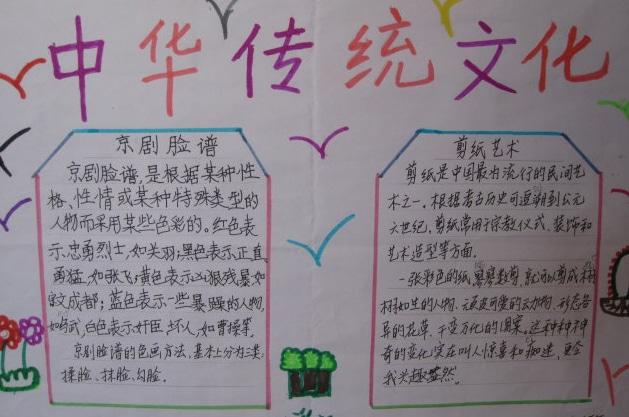 中华传统文化
京剧脸谱
京剧脸谱,是根据某种性
格、性情或某种特殊类型的
人物而采用某些色彩的。红色表
示忠勇烈士,如关羽;黑色表示正直、
勇猛,如张飞;黄色表示凶狠残暴,如
宇文成都;蓝色表示一些暴躁的人物,
白色表示奸臣、坏人,如曹操等。
京剧脸谱的色画方法,基本上分为三类:
揉脸、抹脸、勾脸。
剪纸艺术
剪纸是中国最为流行的民间艺
术之一,根据考古历史可追朔到公元
六世纪,剪纸常用于宗教仪式、装饰和
艺术造型等方面.
一张彩色的纸,寥寥数剪,就可以剪成栩
栩如生的人物、活皮可爱的动物、形态各
异的花草,千变万化的图案。这种种神
奇的变化实在叫人惊喜和痴迷,更令
我兴趣盎然。